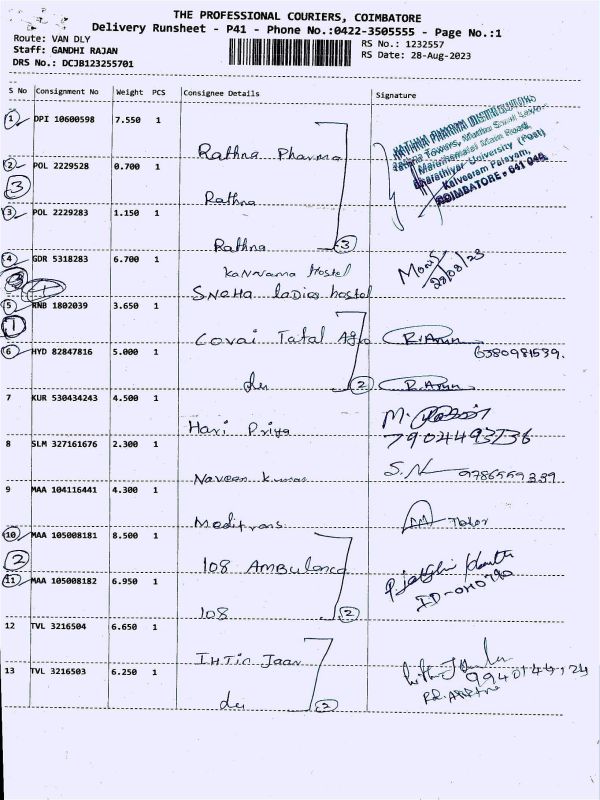 THE PROFESSIONAL COURIERS, COIMBATORE
Delivery Runsheet - P41 - Phone No.:0422-3505555 - Page No.:1
Route: VAN DLY
RS No.: 1232557
Staff: GANDHI RAJAN
RS Date: 28-Aug-2023
DRS No.: DCJB123255701
S No Consignment No Weight PCS Consignee Details Signature
1 DPI 10600598 7.550 1
Rathna Pharma
2 POL 2229528 0.700 1
3
Rathna
3 POL 2229283 1.150 1
Rathna 3
Rathna Towers,
Maruthamalai Main Road,
Bharathiyar University (Post)
Kalveeram Palayam,
COIMBATORE - 641 046.
4 GDR 5318283 6.700 1
Kannama Hostel
SNeHa ladies hostel
28/08/23
5 RNB 1802039 3.650 1
1
Covai Tatal Agro
R. Arun
6380981539.
6 HYD 82847816 5.000 1
do 2
R. Arun
7 KUR 530434243 4.500 1
Hari Priya
7904493736
8 SLM 327161676 2.300 1
Naveen kumar
S. N
9786559339
9 MAA 104116441 4.300 1
Meditrans
10 MAA 105008181 8.500 1
2
108 AMBulance
11 MAA 105008182 6.950 1
108 2
12 TVL 3216504 6.650 1
13 TVL 3216503 6.250 1
do 2